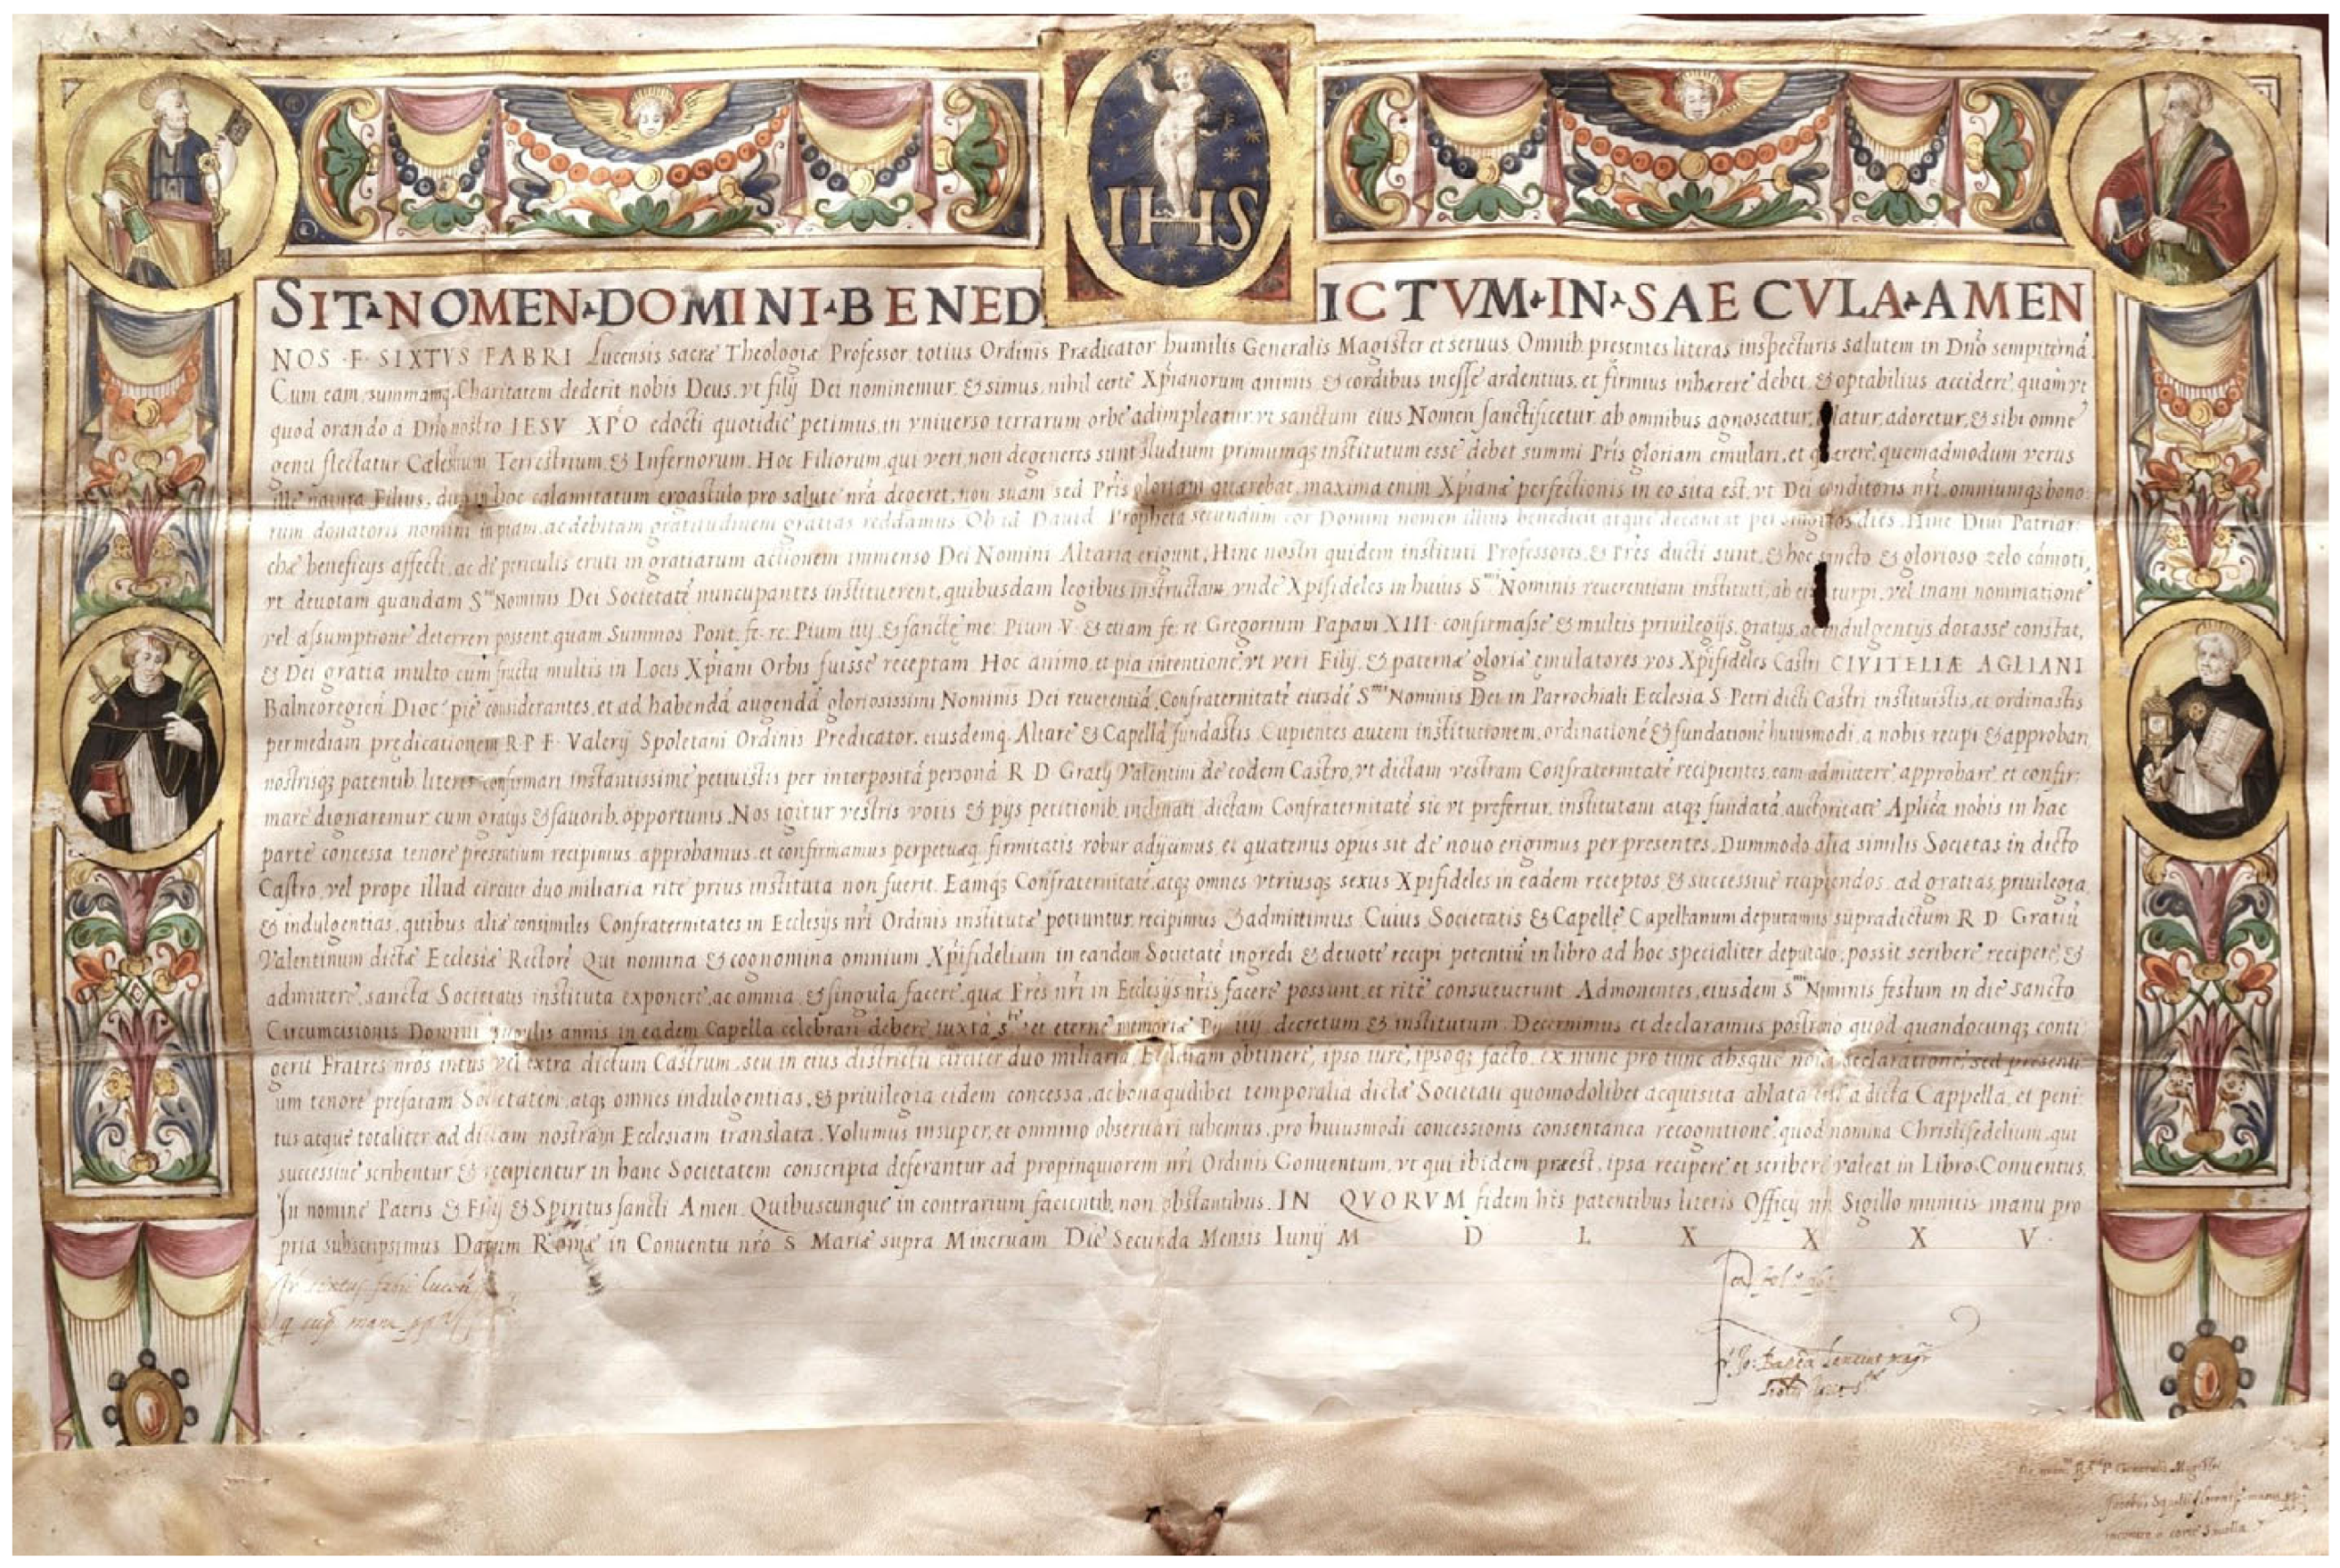 IHS
SIT NOMEN DOMINI BENED ICTVM IN SAECVLA AMEN
NOS F SIXTVS FABRI Lucensis sacræ Theologiæ Professor totius Ordinis Prædicator humilis Generalis Magister et seruus Omnib presentes literas inspecturis salutem in Dño sempiternã
Cum eam summamq Charitatem dederit nobis Deus, vt filij Dei nominemur, & simus, nihil certe Xp̃ianorum animis & cordibus inesse ardentius, et firmius inhærere debet, & optabilius accidere, quam vt
quod orando a Dño nostro IESV XP̃O edocti quotidie petimus, in vniuerso terrarum orbe adimpleatur, vt sanctum eius Nomen sanctificetur ab omnibus agnoscatur, adoretur, & sibi omne
genu flectatur Cælestium Terrestrium & Infernorum. Hoc Filiorum, qui veri, non degeneres sunt studium primumqȝ institutum esse debet summi Pr̃is gloriam emulari, et quemadmodum verus
ille natura Filius, dum in hoc calamitatum ergastulo pro salute nr̃a degeret, non suam sed Pr̃is gloriam quærebat, maxima enim Xp̃ianæ perfectionis in eo sita est, vt Dei conditoris nr̃i, omniumqȝ bono
rum donatoris nomini in piam, ac debitam gratitudinem gratias reddamus Ob id Dauid Propheta secundum cor Domini nomen illius benedicit atque decantat per singulos dies. Hinc Diui Patriar
chæ beneficijs affecti, ac de periculis eruti in gratiarum actionem immenso Dei Nomini Altaria erigunt, Hinc nostri quidem instituti Professores, & Pr̃es ducti sunt, & hoc sancto & glorioso zelo cõmoti,
vt deuotam quandam Sᵐⁱ Nominis Dei Societatẽ nuncupantes instituerent, quibusdam legibus instructam, vnde Xp̃ifideles in huius Sᵐⁱ Nominis reuerentiam instituti, ab eis turpi, vel inani nominatione
vel assumptione deterreri possent, quam Summos Pont. fe. re. Pium iiij & sanctę me: Pium V & etiam fe. re Gregorium Papam XIII confirmasse & multis priuilegijs, gratijs, ac indulgentijs dotasse constat,
& Dei gratia multo cum fructu multis in Locis Xp̃iani Orbis fuisse receptam Hoc animo, et pia intentione, vt veri Filij, & paternæ gloriæ emulatores vos Xp̃ifideles Castri CIVITELLÆ AGLIANI
Balneoregieñ Dioc pie considerantes, et ad habendã augendã gloriosissimi Nominis Dei reuerentiã, Confraternitatẽ eiusdẽ Sᵐⁱ Nominis Dei in Parrochiali Ecclesia S. Petri dicti Castri instituistis, et ordinastis
per mediam prędicationem R. P. F. Valerij Spoletani Ordinis Predicator. eiusdemq. Altare & Capellã fundastis Cupientes autem institutionem, ordinationẽ & fundationẽ huiusmodi, a nobis recipi & approbari
nostrisqȝ patentib. literis confirmari instantissime petiuistis per interpositã personã R D Gratij Valentini de eodem Castro, vt dictam vestram Confraternitatẽ recipientes, eam admittere, approbare, et confir:
mare dignaremur cum gratijs & fauorib. opportunis. Nos igitur vestris votis & pijs petitionib. inclinati dictam Confraternitatẽ sic vt prefertur, institutam atqȝ fundatã auctoritate Aplĩca nobis in hac
parte concessa tenore presentium recipimus, approbamus, et confirmamus perpetuæq. firmitatis robur adijcimus, et quatenus opus sit de nouo erigimus per presentes. Dummodo alia similis Societas in dicto
Castro, vel prope illud circiter duo miliaria rite prius instituta non fuerit. Eamqȝ Confraternitatẽ, atqȝ omnes vtriusqȝ sexus Xp̃ifideles in eadem receptos, & successiue recipiendos, ad gratias, priuilegia,
& indulgentias, quibus aliæ consimiles Confraternitates in Ecclesijs nr̃i Ordinis institutæ potiuntur, recipimus & admittimus. Cuius Societatis & Capellę Capellanum deputamus supradictum R D Gratiũ
Valentinum dictæ Ecclesiæ Rectorẽ Qui nomina & cognomina omnium Xp̃ifidelium in eandem Societatẽ ingredi & deuote recipi petentiũ in libro ad hoc specialiter deputato, possit scribere, recipere, &
admittere, sancta Societatis instituta exponere, ac omnia & singula facere, quæ Fr̃es nr̃i in Ecclesijs nr̃is facere possunt, et rite consueuerunt Admonentes, eiusdem Sᵐⁱ Nominis festum in die sancto
Circumcisionis Domini singulis annis in eadem Capella celebrari debere, iuxta et eterne memoriæ Pij iiij decretum & institutum. Decernimus et declaramus postremo quod quandocunqȝ conti
gerit Fratres nr̃os intus vel extra dictum Castrum, seu in eius districtu circiter duo miliaria, Ecclesiam obtinere, ipso iure, ipsoqȝ facto, ex nunc pro tunc absque noua declaratione, sed presenti
um tenore prefatam Societatem, atqȝ omnes indulgentias, & priuilegia eidem concessa, ac bona quælibet temporalia dictæ Societati quomodolibet acquisita ablata a dicta Cappella, et peni
tus atque totaliter ad dictam nostram Ecclesiam translata. Volumus insuper, et omnino obseruari iubemus, pro huiusmodi concessionis consentanea recognitione, quod nomina Christifedelium, qui
successiue scribentur & recipientur in hanc Societatem conscripta deferantur ad propinquiorem nr̃i Ordinis Conuentum, vt qui ibidem præest, ipsa recipere et scribere valeat in Libro Conuentus,
In nomine Patris & Filij & Spiritus sancti Amen. Quibuscunque in contrarium facientib. non obstantibus. IN QVORVM fidem his patentibus literis Officij nr̃i Sigillo munitis manu pro
pria subscripsimus Datum Romæ in Conuentu nr̃o S Mariæ supra Mineruam Die Secunda Mensis Iunij M D L X X X V